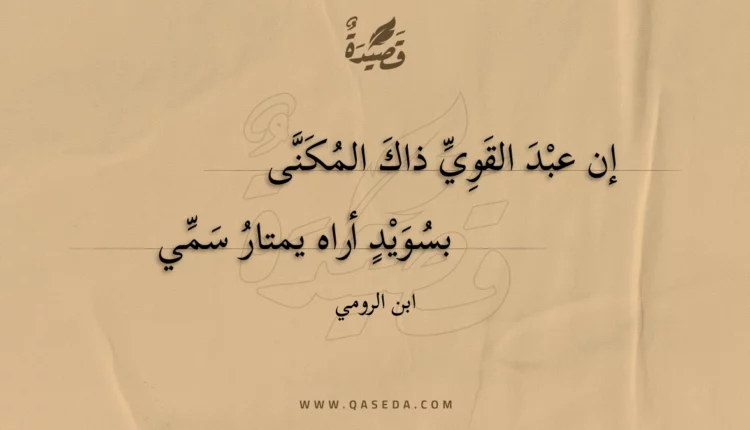 قَصِيْدَةٌ
إن عبْدَ القَوِيِّ ذاكَ المُكَنَّى
بسُوَيْدٍ أراه يمتارُ سَمِّي
ابن الرومي
WWW.QASEDA.COM